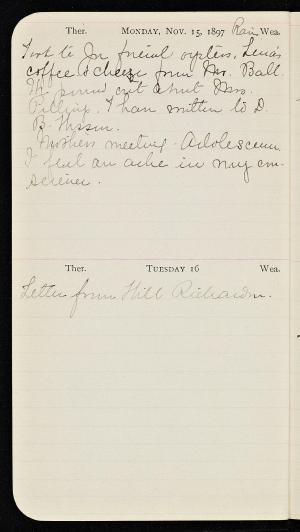 Ther. MONDAY, NOV. 15, 1897 Rain Wea.
Took to Jon fried oysters,
coffee & cheese from Mrs. Ball.
pound cut about Mrs.
I have written to D.
B.
Mothers meeting - Adolescence
I feel an ache in my con-
science.
Ther. TUESDAY 16 Wea.
Letter from Will Richardson.